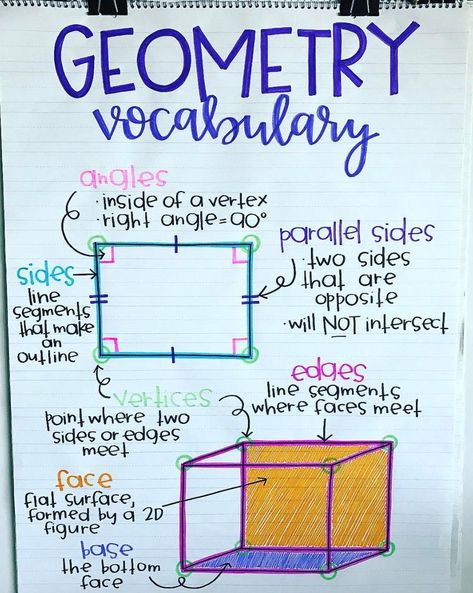 GEOMETRY
vocabulary
angles
· inside of a vertex
· right angle = 90°
sides
line
segments
that make
an
outline
parallel sides
· two sides
that are
opposite
· will NOT intersect
vertices
point where two
sides or edges
meet
edges
line segments
where faces meet
face
flat surface,
formed by a 2D
figure
base
the bottom
face